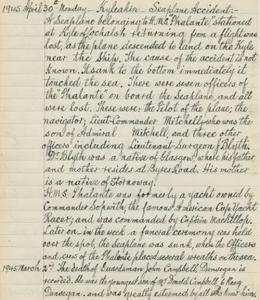 1945 April 30th Monday - Kyleakin - Seaplane Accident -
A Seaplane belonging to H.M.S. "Phalante" stationed
at Kyle of Lochalsh returning from a flight was
lost, as the plane descended to land on the Kyle
near the Ship. The cause of the accident is not
known. It sank to the bottom immediately it
touched the sea. There were seven officers of
the "Phalante" on board the Seaplane, and all
were lost. These were: the Pilot of the plane; the
navigator; Lieut-Commander Mitchell, who was the
son of Admiral Mitchell and three other
officers including Lieutenant-Surgeon Blyth.
Dr. Blyth was a native of Glasgow, where his father
and mother reside at Byres Road. His mother
is a native of Stornoway.
H.M.S. Phalante was formerly a yacht owned by
Commander Sopwith, the famous American Cup Yacht
Racer; and was commanded by Captain
Later on in the week a funeral ceremony was held
over the spot, the Seaplane was sunk, when the Officers
and crew of the Phalante placed several wreaths on the sea.
1945 March The death of Guardsman John Campbell, Dunvegan is
recorded. He was the youngest son of Mr Donald Campbell &
Dunvegan, and was greatly esteemed by all who knew him.